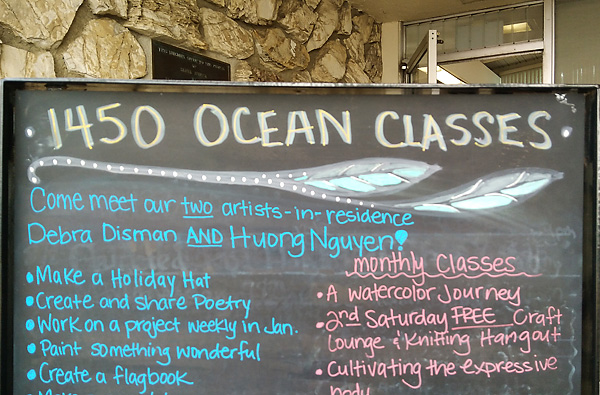 1450 OCEAN CLASSES
Come meet our TWO artists-in-residence
Debra Disman AND Huong Nguyen!
• Make a Holiday Hat
• Create and share Poetry
• Work on a project weekly in Jan.
• Paint something wonderful
• Create a flagbook
monthly Classes
• A watercolor Journey
• 2nd Saturday FREE Craft
Lounge & Knitting Hangout
• Cultivating the expressive
body